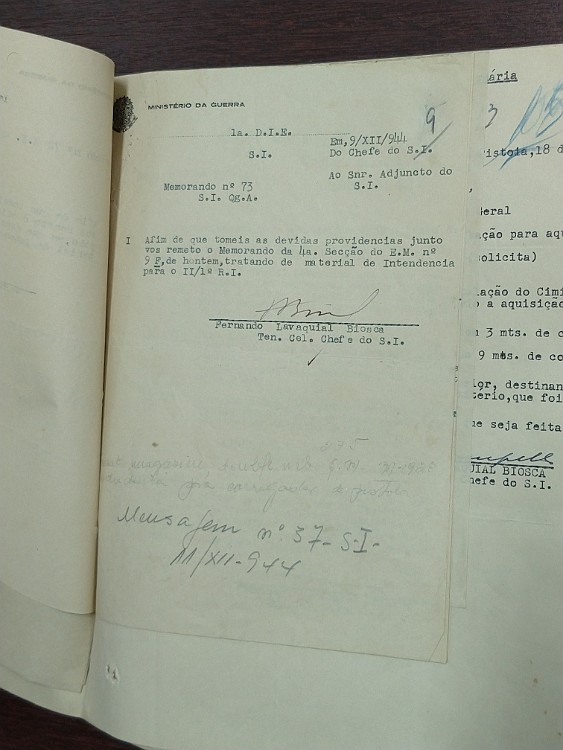 MINISTÉRIO DA GUERRA
9
1a. D.I.E.
S.I.
Em, 9/XII/944
Do Chefe do S.I.
Ao Snr. Adjuncto do
S.I.
Memorando nº 73
S.I. Qg.A.
I Afim de que tomeis as devidas providencias junto
vos remeto o Memorando da 4a. Secção do E.M. nº
9 F, de hontem, tratando de material de Intendencia
para o II/1º R.I.
Fernando Lavaquial Biosca
Ten. Cel. Chefe do S.I.
Mensagem nº 37- S.I-
11/XII-944
ária
3
istoia, 18 d
eral
ção para aqu
olicita)
lação do Cimi
o a aquisição
3 mts. de c
9 mts. de co
or, destinan
erio, que foi
ue seja feita
UIAL BIOSCA
hefe do S.I.